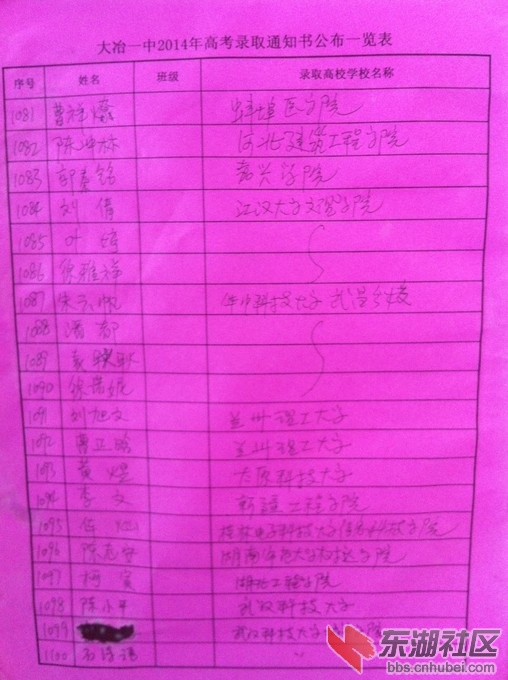 大冶一中2014年高考录取通知书公布一览表
序号 姓名 班级 录取高校学校名称
1081 曹祥 蚌埠医学院
1082 陈 林 河北建筑工程学院
1083 郭 铭 嘉兴学院
1084 刘倩 江汉大学文理学院
1085 叶
1086 徐雅祥
1087 朱 帆 华中科技大学武昌分校
1088 潘都
1089 袁
1090 徐
1091 刘旭文 兰州理工大学
1092 曹正 兰州理工大学
1093 黄煜 太原科技大学
1094 李文 新疆工程学院
1095 伍 桂林电子科技大学信息科技学院
1096 陈志 湖南 大学 学院
1097 柯宾 湖北工程学院
1098 陈小平 武汉科技大学
1099 武汉科技大学 学院
1100 石诗语
东湖社区
bbs.cnhubei.com